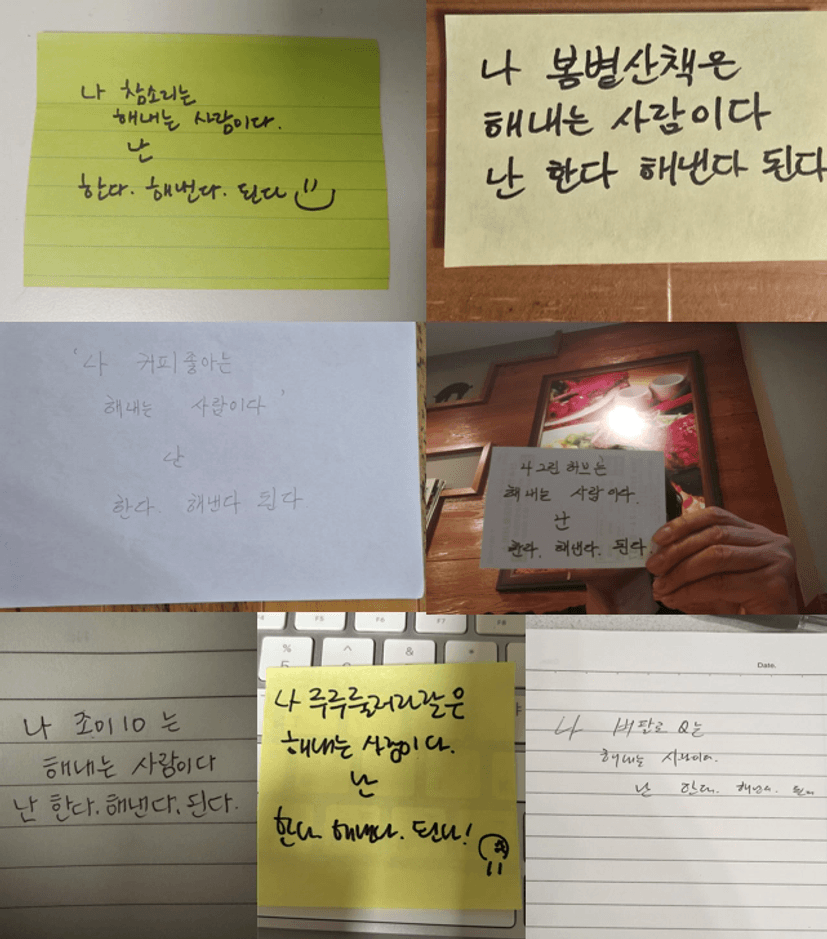 나 참소리는
해내는 사람이다.
난
한다. 해낸다. 된다
나 봄볕산책은
해내는 사람이다
난 한다 해낸다 된다
'나 커피좋아는
해내는 사람이다'
난
한다 해낸다 된다
나 그린허브는
해내는 사람이다.
난
한다. 해낸다. 된다.
나 조이10 는
해내는 사람이다
난 한다. 해낸다. 된다.
%
5
^
&
*
F5
F6
F7
F8
나 루루룰러라랄은
해내는 사람이다.
난
한다 해낸다. 된다!
Date.
나 버팔로Q는
해내는 사람이다.
난 한다. 해낸다. 된다